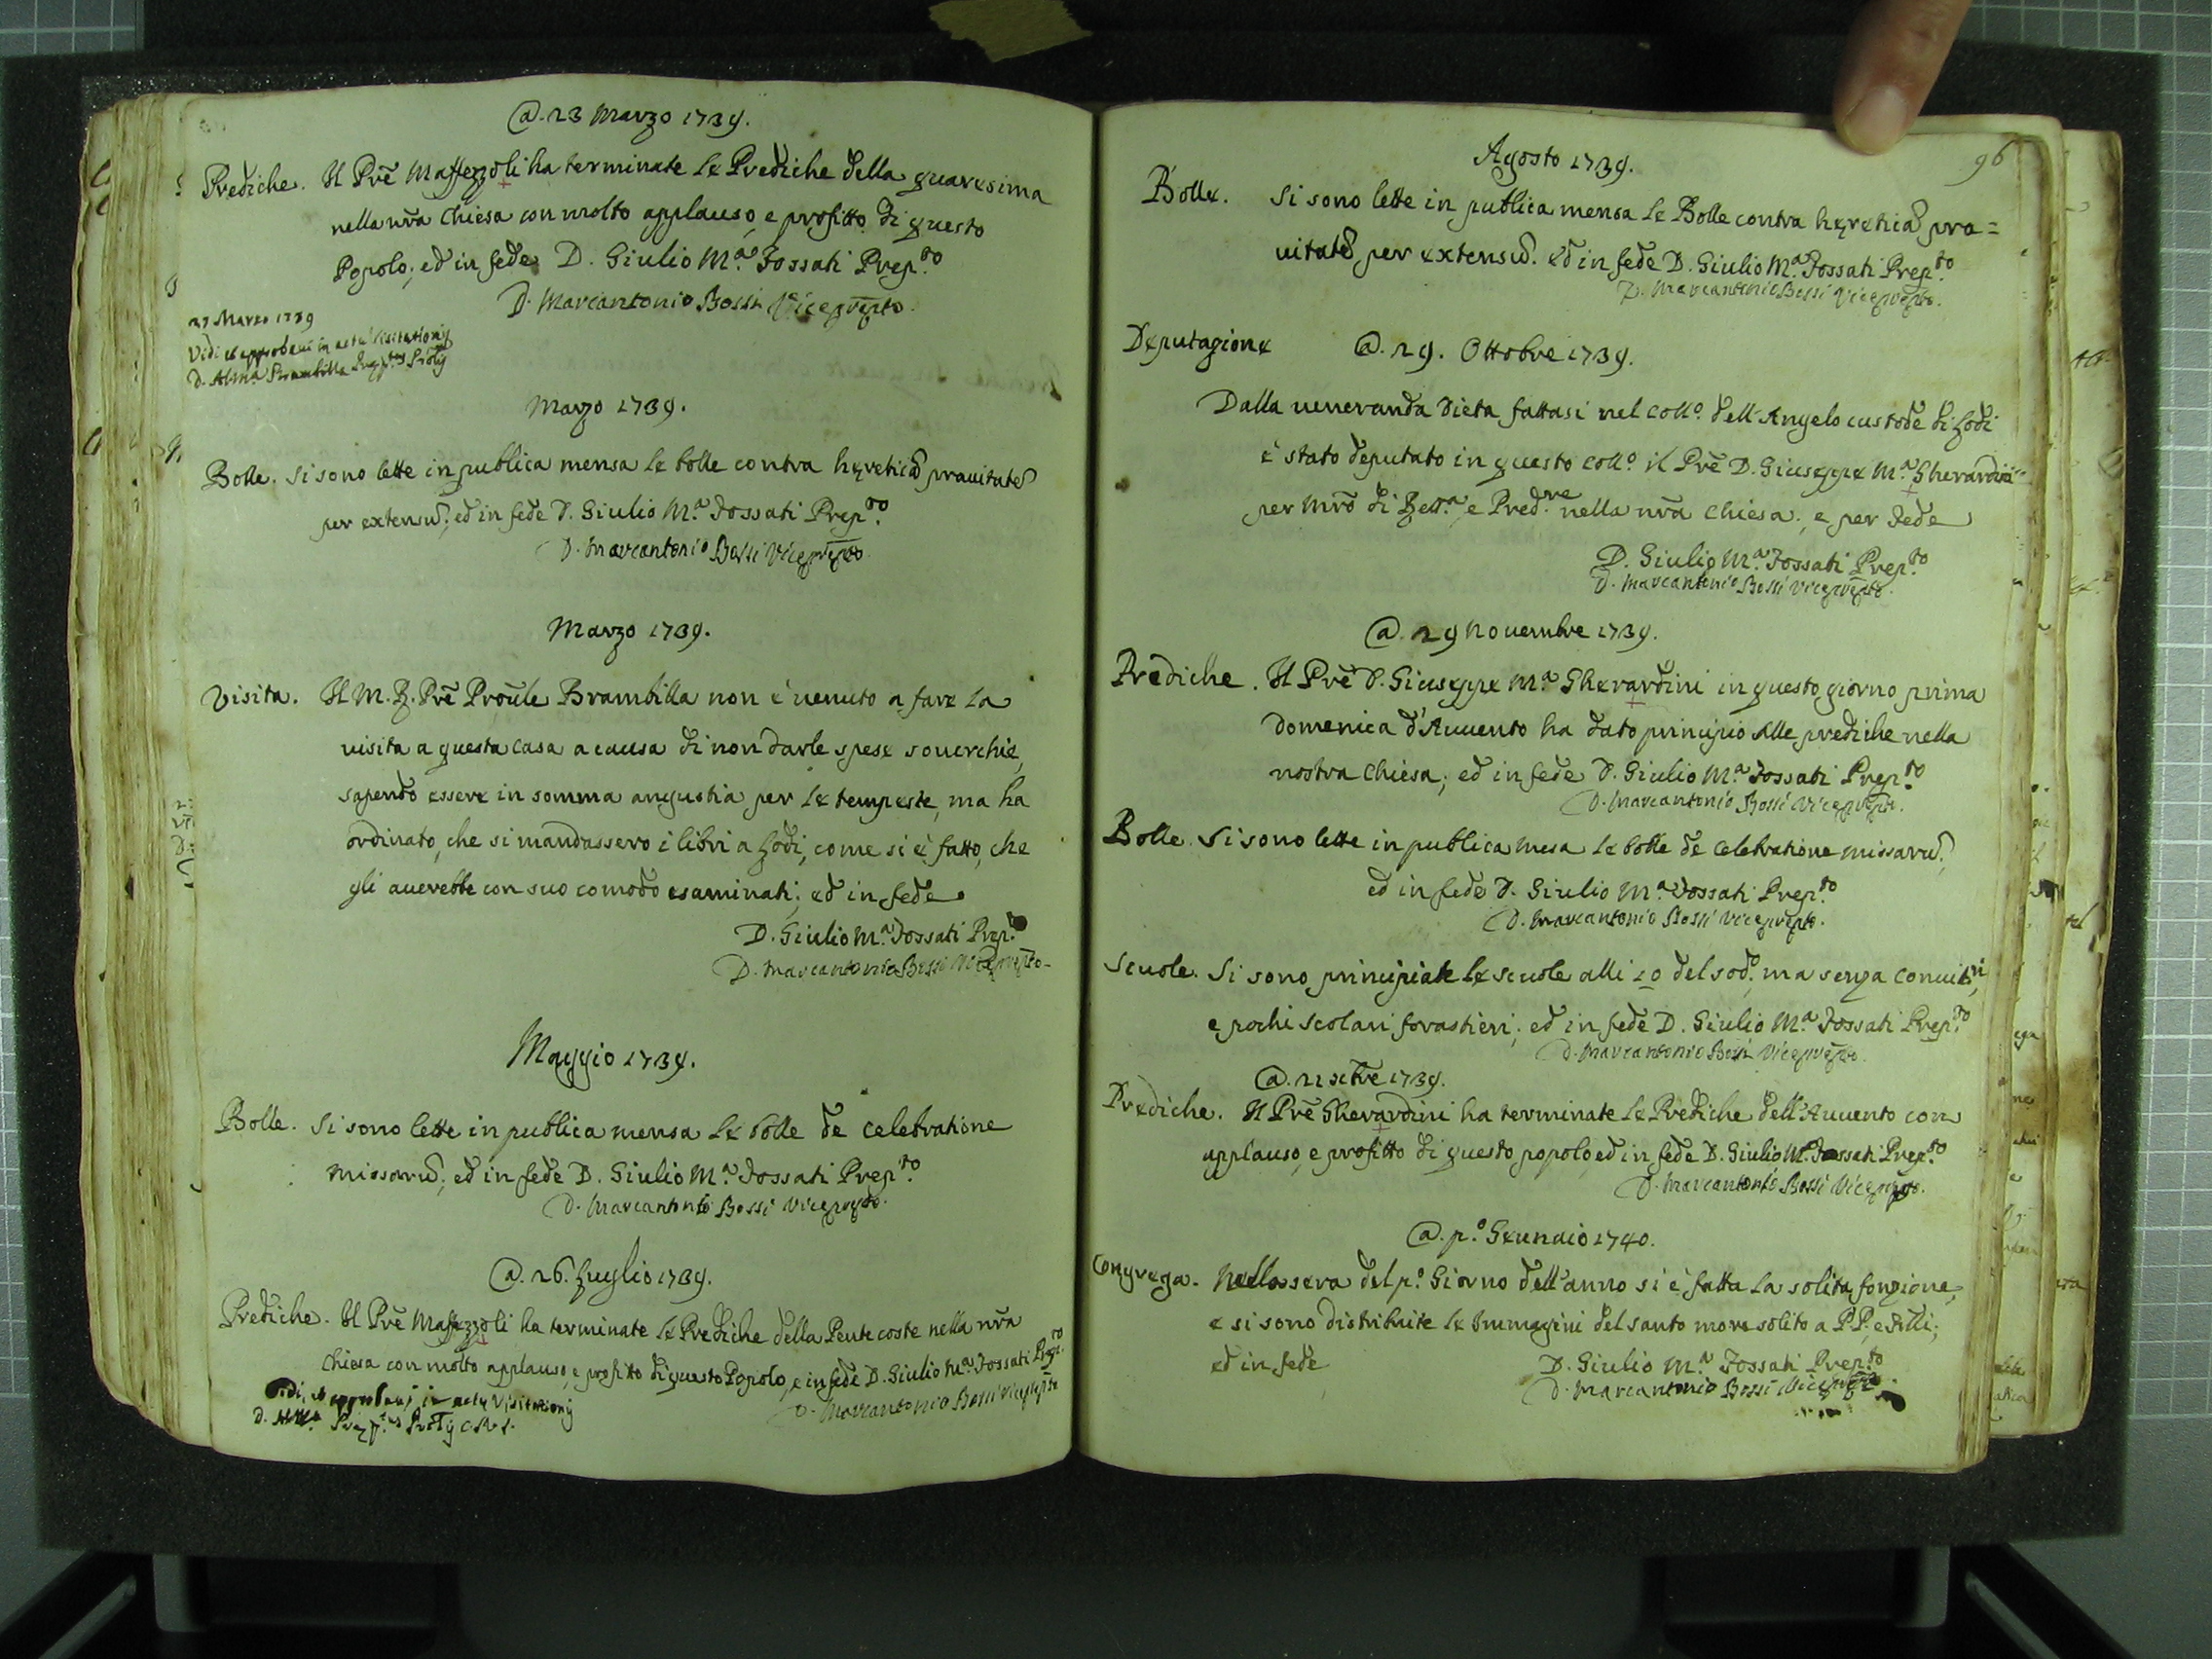 @. 23 Marzo 1739.
Prediche. Il Prē Maffezzoli ha terminate le Prediche della quaresima
nella nrā Chiesa con molto applauso, e profitto di questo
Popolo; ed in fede D. Giulio M.ª Fossati Prep.to
D. Marcantonio Bossi Viceprepto.
27 Marzo 1739
Vidi et approbavi in actu Visitationis
D. Brambilla Prep.tus Prōlis
Marzo 1739.
Bolle. Si sono lette in publica mensa le bolle contra hereticā pravitatē
per extensū; ed in fede D. Giulio M.ª Fossati Prep.to
D. Marcantonio Bossi Viceprepto.
Marzo 1739.
Visita. Il M. R. Prē Proūle Brambilla non è uenuto a fare la
uisita a questa casa a causa di non darle spese souerchie,
sapendo essere in somma angustia per le tempeste, ma ha
ordinato, che si mandassero i libri a Lodi, come si è fatto, che
gli auerebbe con suo comodo esaminati; ed in fede
D. Giulio M.ª Fossati Prep.to
D. Marcantonio Bossi Viceprepto.
Maggio 1739.
Bolle. Si sono lette in publica mensa le bolle de celebratione
missarū; ed in fede D. Giulio M.ª Fossati Prep.to
D. Marcantonio Bossi Viceprepto.
@. 26. Luglio 1739.
Prediche. Il Prē Maffezzoli ha terminate le Prediche della Pentecoste nella nrā
Chiesa con molto applauso, e profitto di questo Popolo, e in fede D. Giulio M.ª Fossati Prep.to
D. Marcantonio Bossi Viceprepto
Vidi, et approbavi in actu Visitationis
D. Prep.tus Prōlis C.R.S.
96
Agosto 1739.
Bolle. Si sono lette in publica mensa le Bolle contra hereticā pra=
uitatē per extensū. ed in fede D. Giulio M.ª Fossati Prep.to
D. Marcantonio Bossi Viceprepto.
Deputazione @. 29. Ottobre 1739.
Dalla ueneranda Dieta fattasi nel Coll.o dell'Angelo custode di Lodi
è stato deputato in questo Coll.o il Prē D. Giuseppe M.ª Gherardini
per Mrō di Rett.ª e Pred.re nella nrā Chiesa; e per fede
D. Giulio M.ª Fossati Prep.to
D. Marcantonio Bossi Viceprepto.
@. 29 Nouembre 1739.
Prediche. Il Prē D. Giuseppe M.ª Gherardini in questo giorno prima
Domenica d'Auuento ha dato principio alle prediche nella
nostra Chiesa; ed in fede D. Giulio M.ª Fossati Prep.to
D. Marcantonio Bossi Viceprepto.
Bolle. Si sono lette in publica mesa le bolle de Celebratione missarū;
ed in fede D. Giulio M.ª Fossati Prep.to
D. Marcantonio Bossi Viceprepto.
Scuole. Si sono principiate le scuole alli 10 del sod.o ma senza conuitori,
e pochi scolari forastieri; ed in fede D. Giulio M.ª Fossati Prep.to
D. Marcantonio Bossi Viceprepto.
@. 21 Xbre 1739.
Prediche. Il Prē Gherardini ha terminate le Prediche dell'Auuento con
applauso, e profitto di questo popolo, ed in fede D. Giulio M.ª Fossati Prep.to
D. Marcantonio Bossi Viceprepto.
@. p.o Gennaio 1740.
Congrega. Nella sera del p.o Giorno dell'anno si è fatta la solita fonzione,
e si sono distribuite le Immagini del santo more solito a P.P. e Frlli;
ed in fede D. Giulio M.ª Fossati Prep.to
D. Marcantonio Bossi Viceprepto.